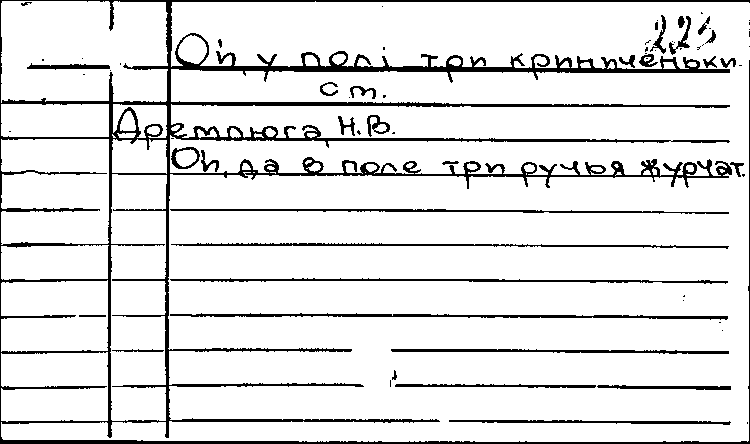 223
Ой, у полі три криниченьки.
ст.
Дремлюга, Н.В.
Ой, да в поле три ручья журчат.